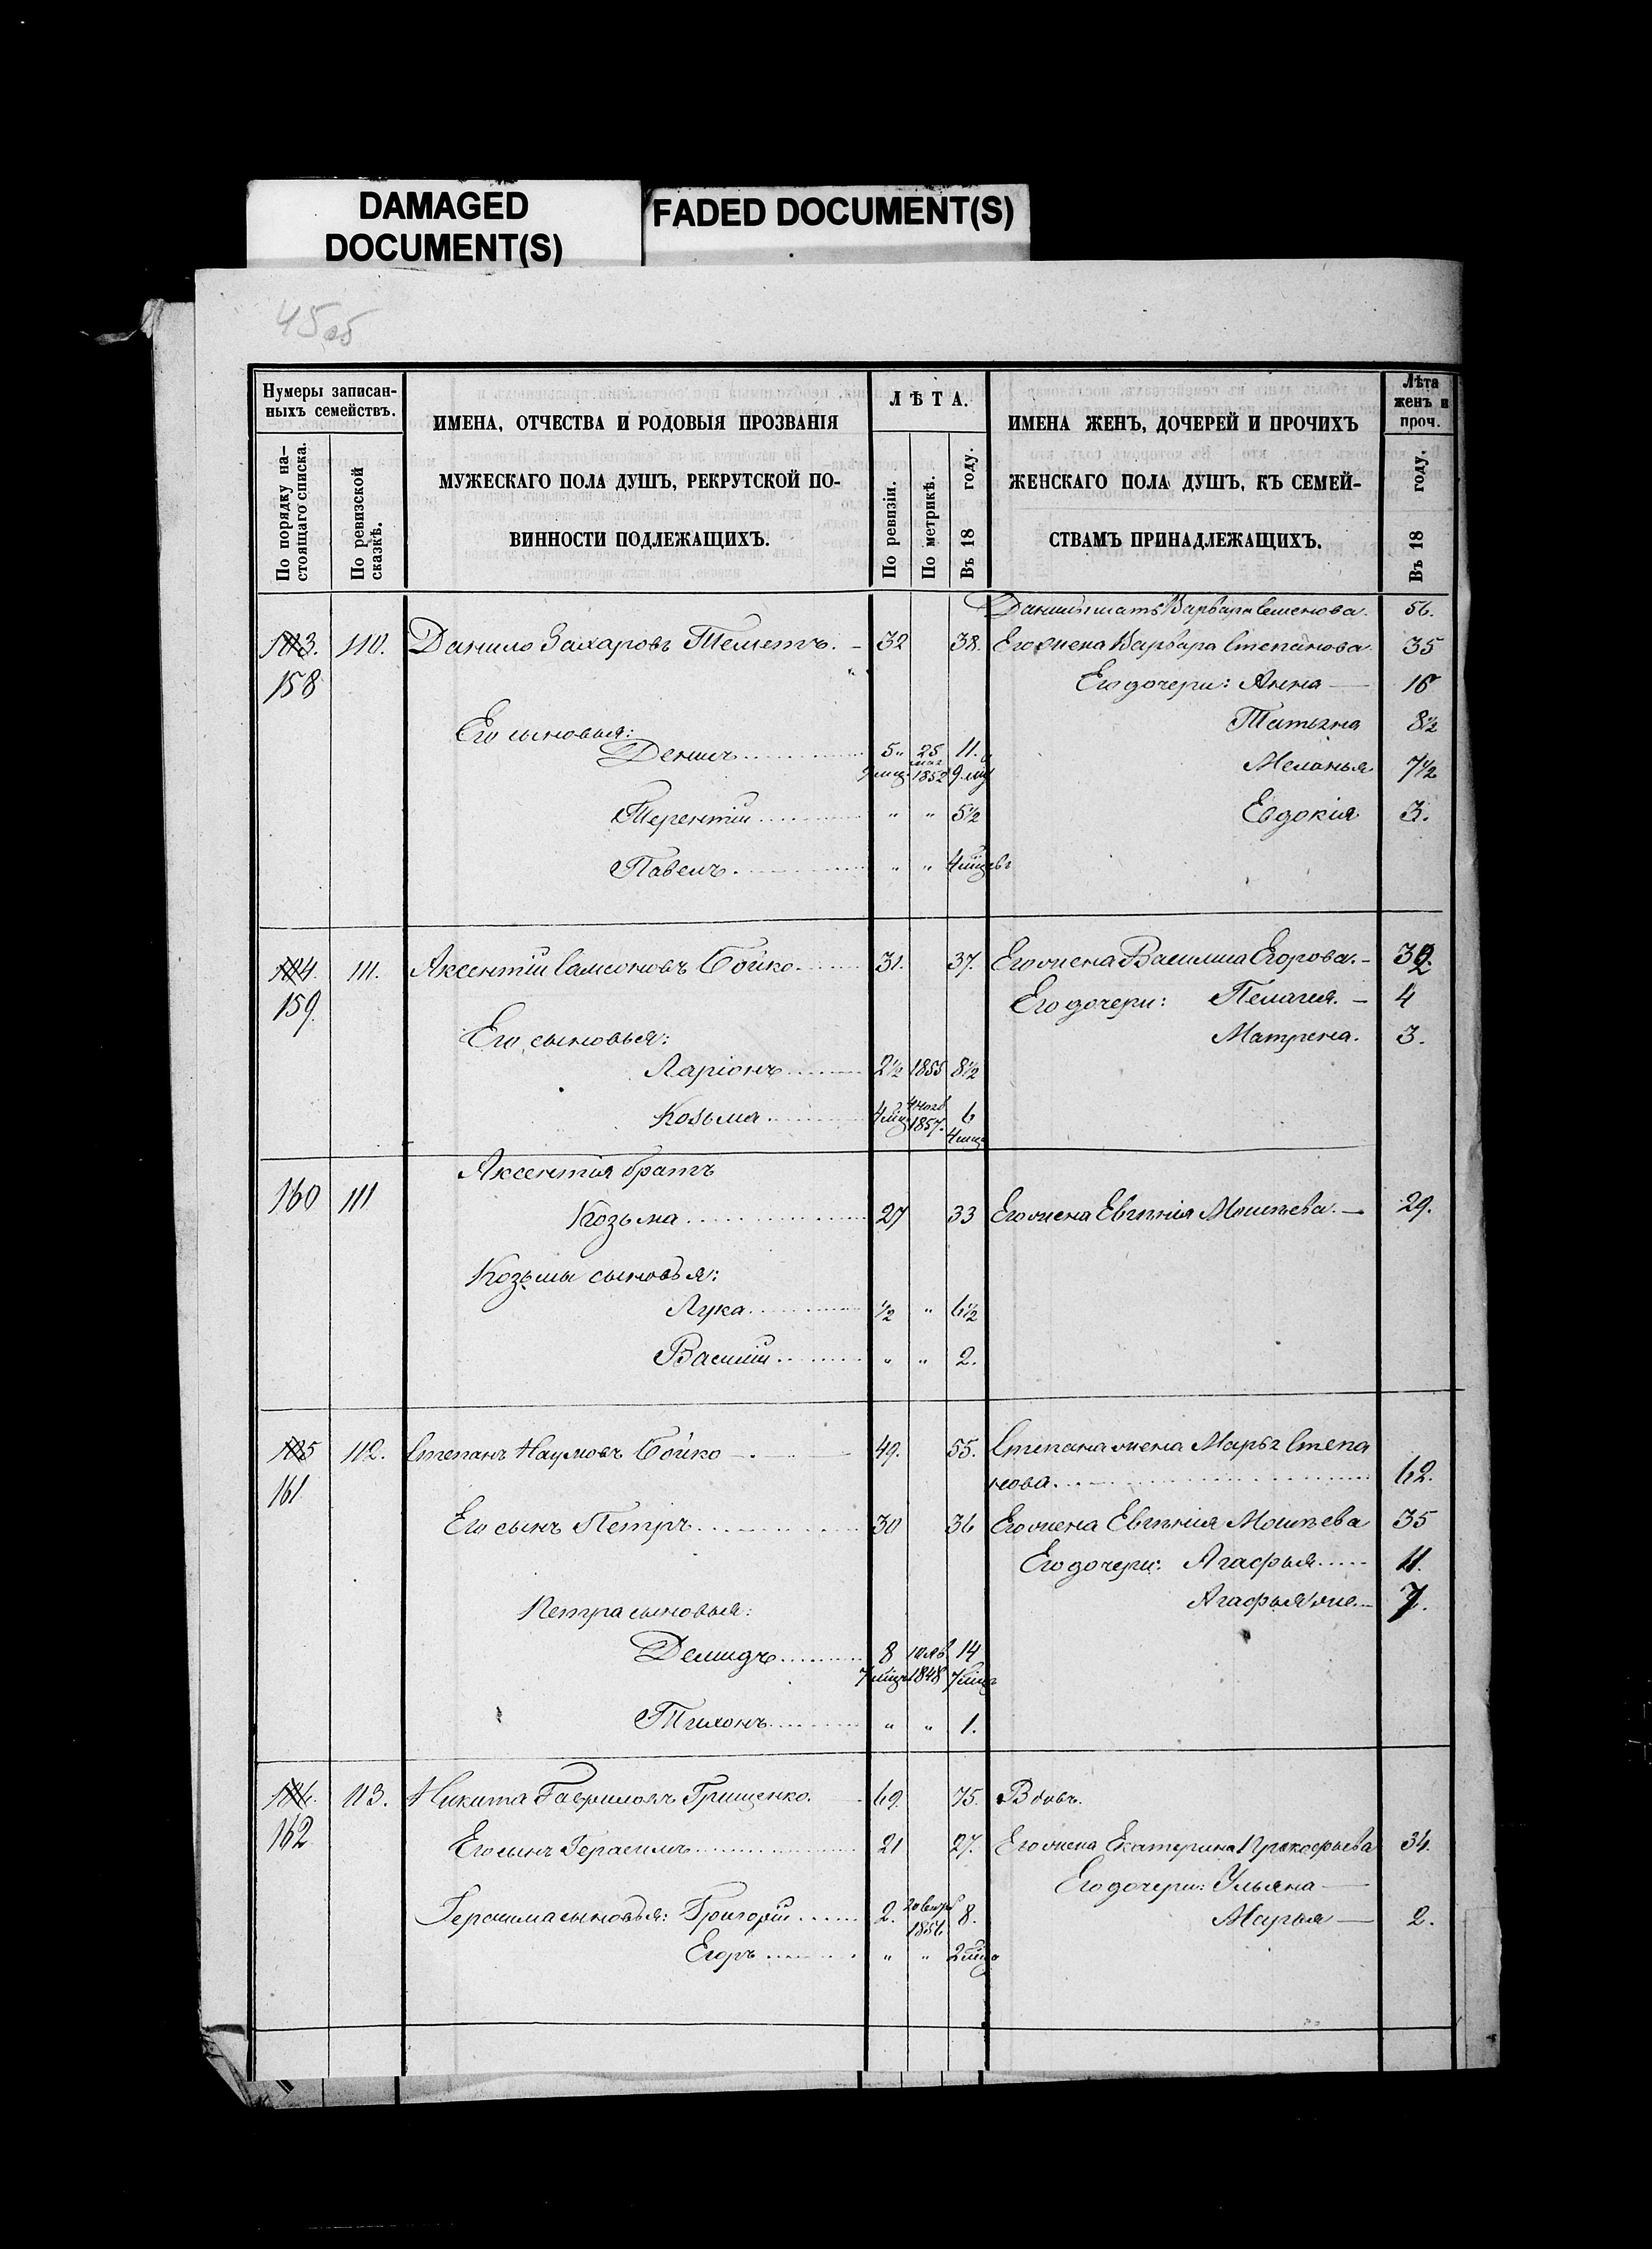 DAMAGED
DOCUMENT(S)
FADED DOCUMENT(S)
45 об
Нумеры записан-
ныхъ семействъ.
По порядку на-
стоящаго списка.
По ревизской
сказкѣ.
ИМЕНА, ОТЧЕСТВА И РОДОВЫЯ ПРОЗВАНІЯ
МУЖЕСКАГО ПОЛА ДУШЪ, РЕКРУТСКОЙ ПО-
ВИННОСТИ ПОДЛЕЖАЩИХЪ.
ЛѢТА.
По ревизіи.
По метрикѣ.
Въ 18 году.
ИМЕНА ЖЕНЪ, ДОЧЕРЕЙ И ПРОЧИХЪ
ЖЕНСКАГО ПОЛА ДУШЪ, КЪ СЕМЕЙ-
СТВАМЪ ПРИНАДЛЕЖАЩИХЪ.
Лѣта
женъ и
проч.
Въ 18 году.
мать Варвара Семенова. 56.
103. 110. Данило Захаровъ 32 38. Его жена Варвара Степанова. 35
158 Его дочери: Анна 16
Татьяна 8½
Его сыновья:
Денисъ 5 9 мщ. 25 мая 1852 11. 9 мщ
Меланья 7½
Терентій " " 5½ Евдокія 3.
Павелъ " " 4 мщевъ
104. 111. Аксентій Самсоновъ Бойко 31. 37. Его жена Василиса Егорова.
159. Его дочери: Пелагия. 4
Матрена. 3.
Его сыновья:
Ларіонъ 2½ 1855 8½
Козьма 4 мщ 1857. 6 4 мщ
Аксентія братъ
160 111 Козьма 27 33 Его жена Евгенія Моисеева. 29.
Козьмы сыновья:
Лука ½ " 6½
Василій " " 2.
105 112. Степанъ Наумовъ Бойко 49. 55. Степана жена Марья Степа
161 нова. 62.
Его сынъ Петръ 30 36 Его жена Евгенія Моисеева 35
Его дочери: Агафья 11.
Агафья же 7.
Петра сыновья:
Демидъ 8 7 мщ 1848 14 7 мщ
Тихонъ " " 1.
106. 113. Никита Гавриловъ Грищенко. 69. 75. Вдовъ.
162 Его сынъ Герасимъ 21 27. Его жена Екатерина Прокофьева 34.
Его дочери: Ульяна
Герасима сыновья: Григорій 2. 8. Марья 2.
Егоръ " " 2 мщ